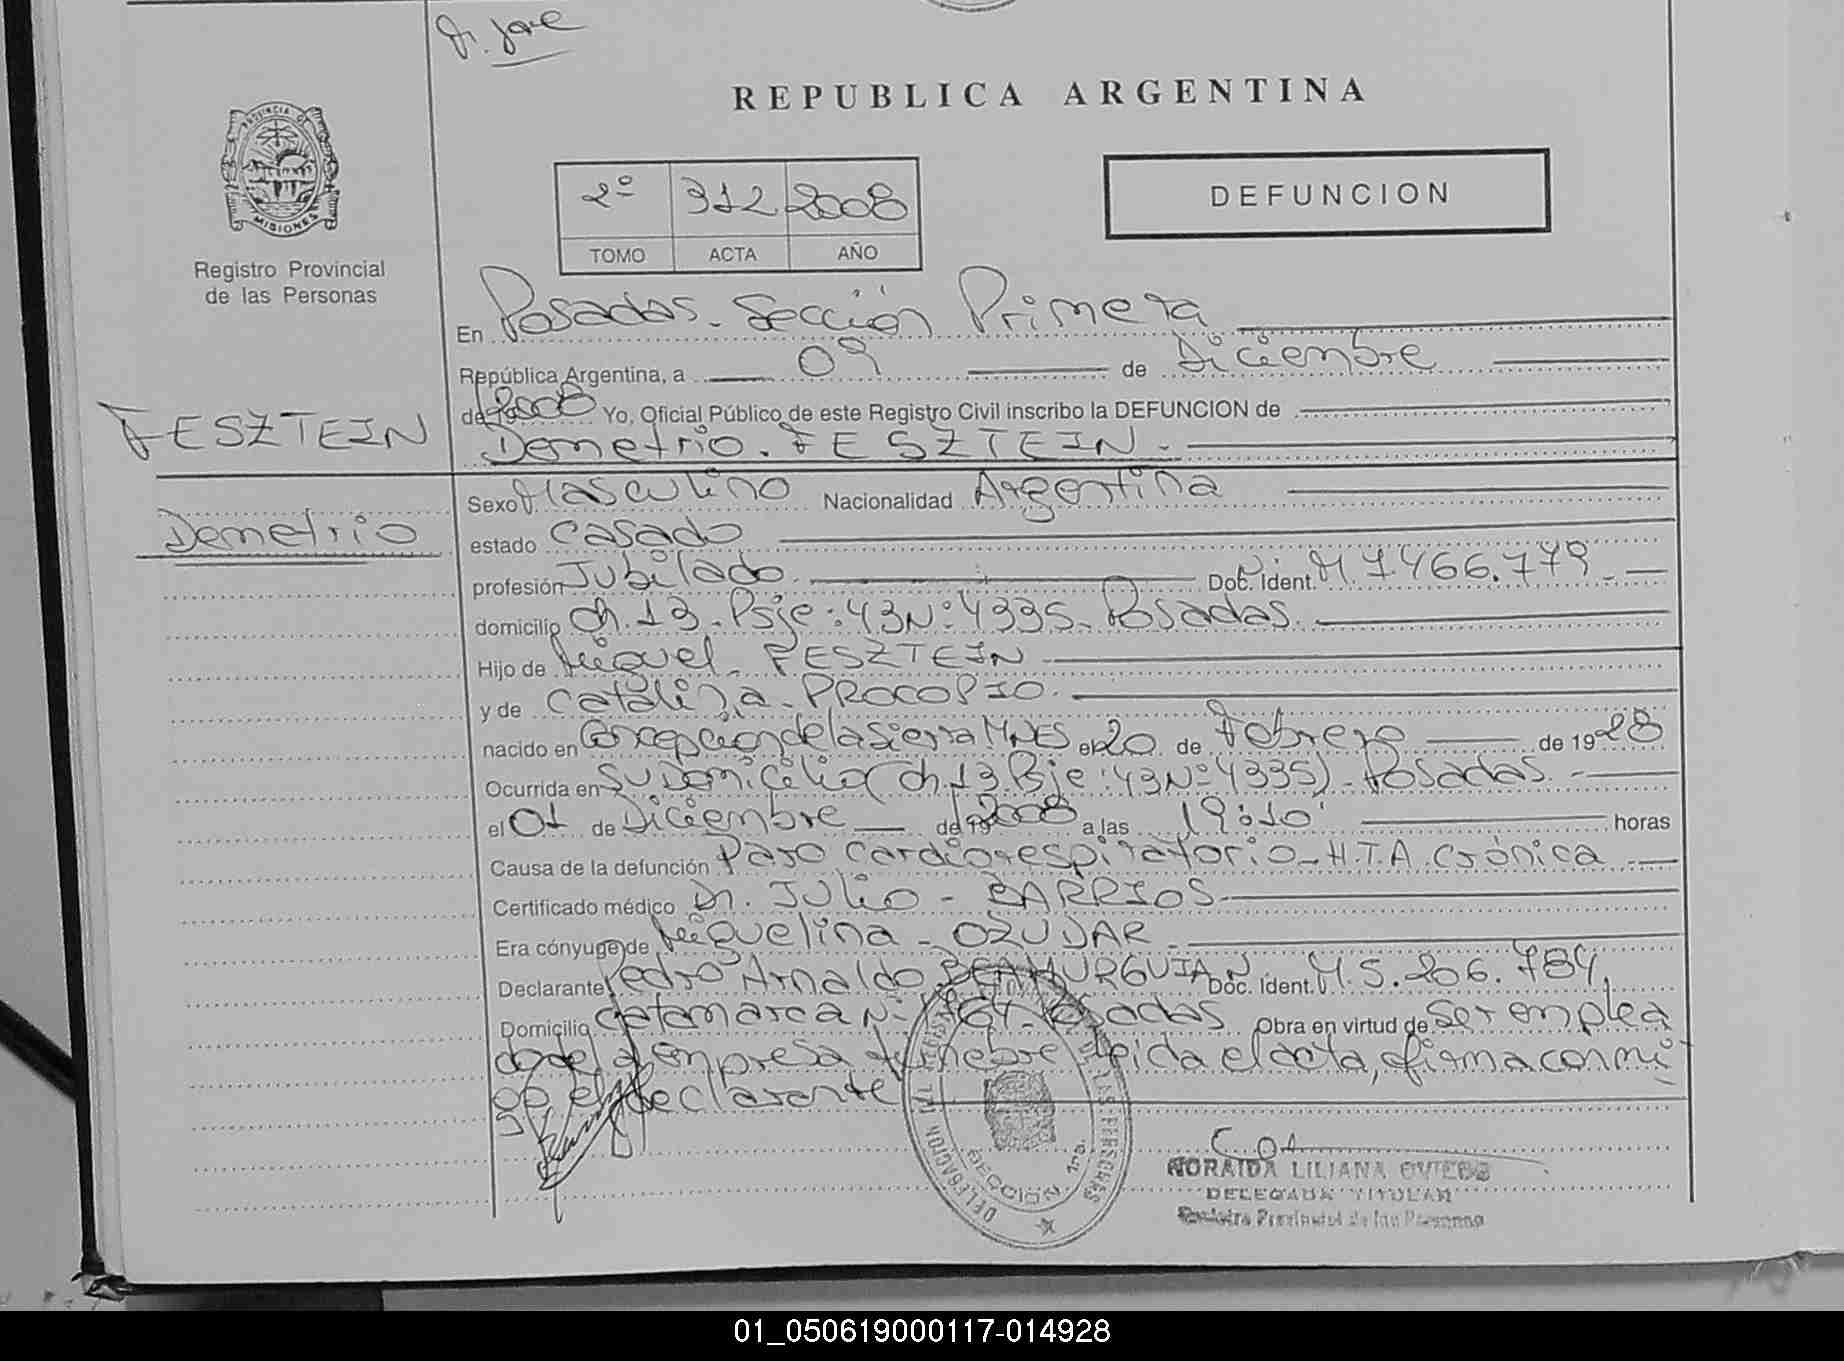 REPUBLICA ARGENTINA
PROVINCIA DE
MISIONES
Registro Provincial
de las Personas
2º 312 2008
TOMO ACTA AÑO
DEFUNCION
En Posadas - Sección Primera
República Argentina, a 09 de Diciembre
de 2008 Yo, Oficial Público de este Registro Civil inscribo la DEFUNCION de
FESZTEIN
Demetrio. FESZTEIN -
Sexo Masculino Nacionalidad Argentina
Demetrio
estado Casado
profesión Jubilado. Doc. Ident. M 7.466.779 -
domicilio Ch. 13 - Psje: 43 Nº: 4335 - Posadas.
Hijo de Miguel - FESZTEIN
y de Catalina - PROCOPIO.
nacido en Concepción de la Sierra MNES el 20 de Febrero de 1928
Ocurrida en Su Domicilio (Ch 13 Psje: 43 Nº 4335) - Posadas. -
el 01 de Diciembre de 2008 a las 19:10' horas
Causa de la defunción Paro Cardiorespiratorio - H.T.A. Crónica -
Certificado médico Dr. Julio - BARRIOS
Era cónyuge de Miguelina - OZUJAR -
Declarante Pedro Arnaldo BEAMURGUIAN Doc. Ident. M. 5.206.784
Domicilio Catamarca Nº 764 - Posadas Obra en virtud de Ser emplea
do de la empresa fúnebre leida el acta, firma conmi
go el declarante
DELEGACION SECCION 1ra. DE LAS PERSONAS
NORAIDA LILIANA OVIEDO
DELEGADA TITULAR
Registro Provincial de las Personas
01_050619000117-014928